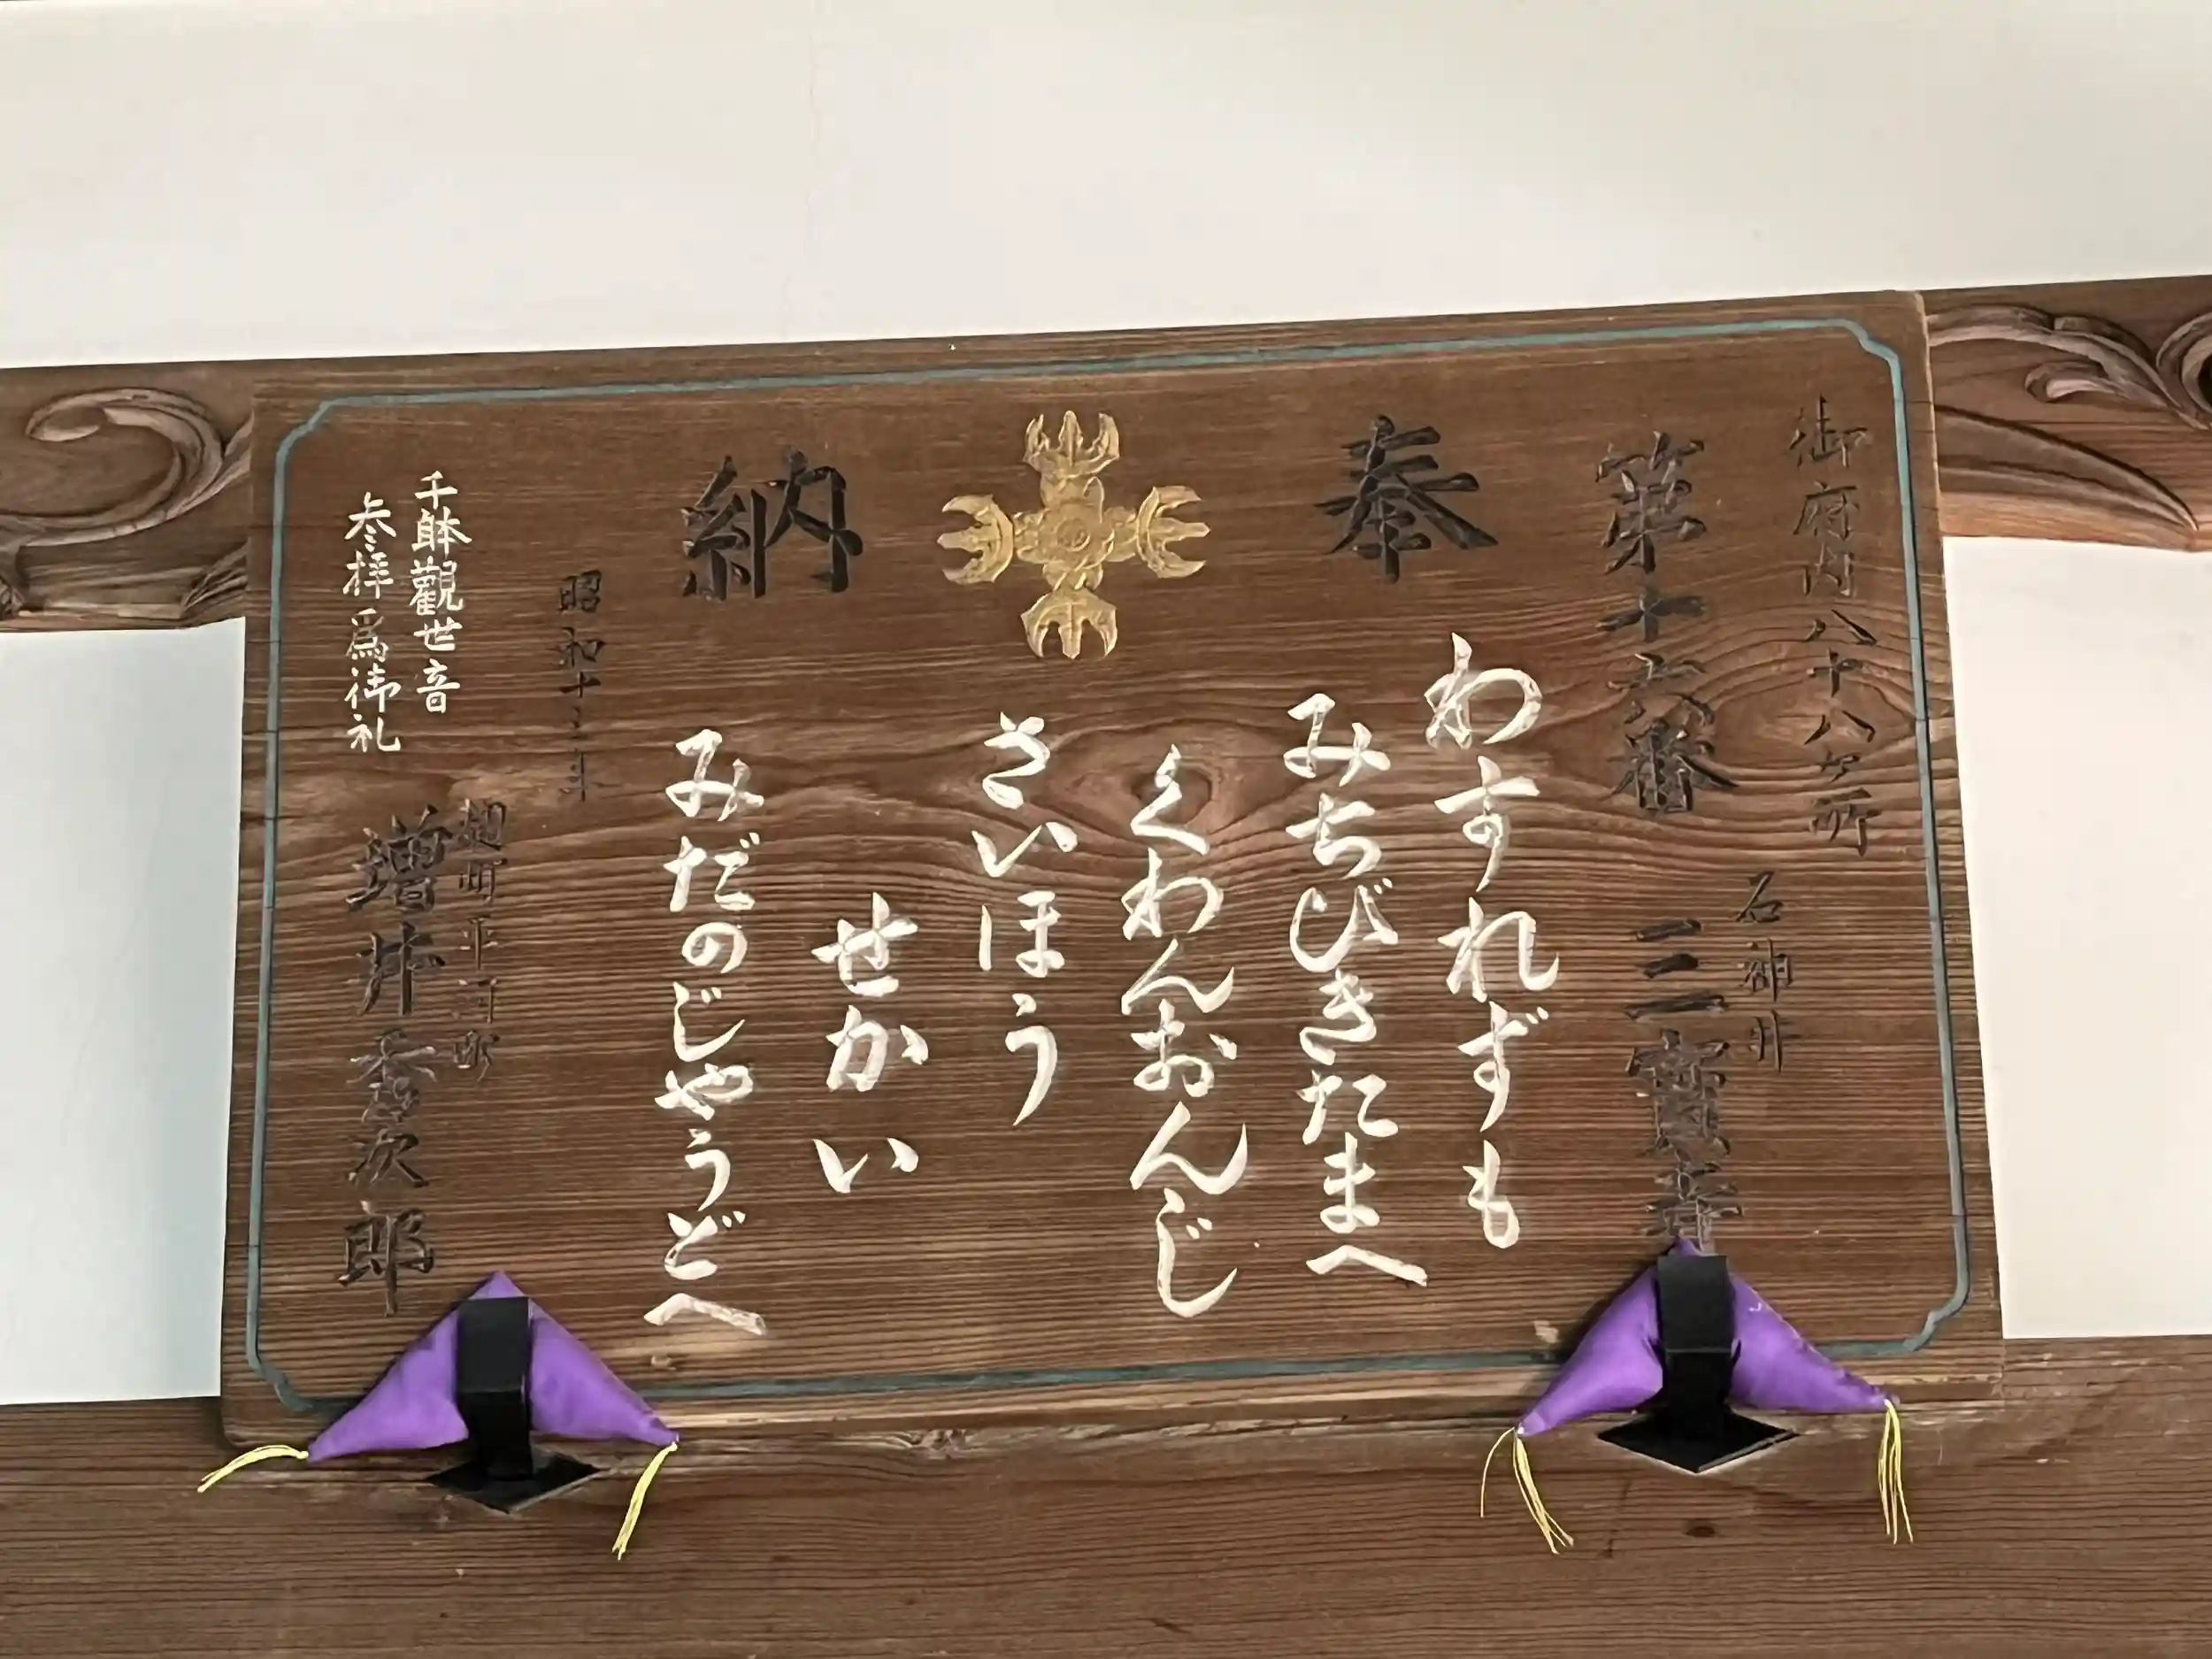 御府内八十八ケ所
第十六番
石神井
三寶寺
奉納
わすれずも
みちびきたまへ
くわんおんじ
さいほう
せかい
みだのじやうどへ
昭和十三年
千躰觀世音
参拝爲御礼
麹町平河町
増井香次郎